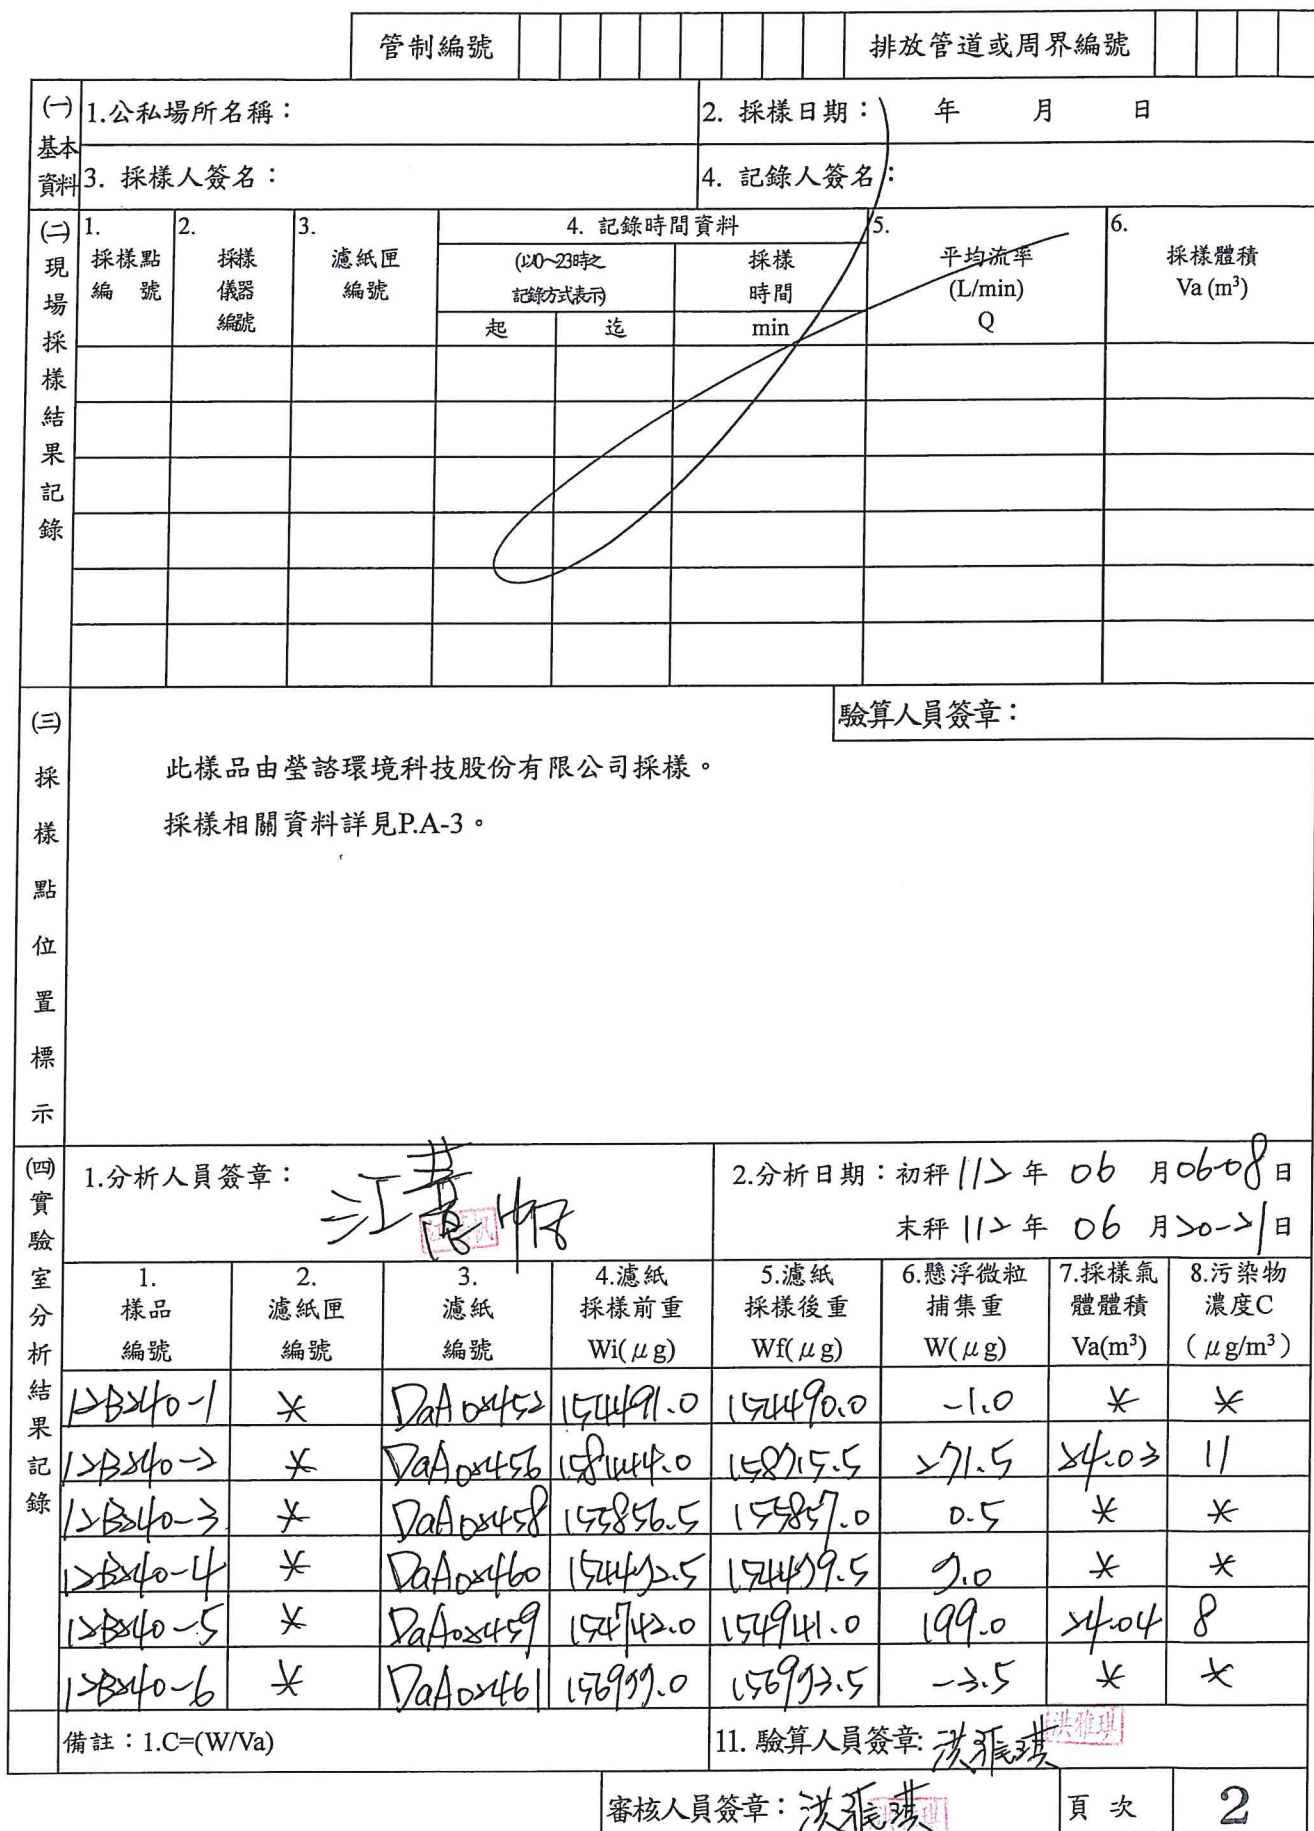 管制編號 排放管道或周界編號
(一)基本資料
1.公私場所名稱： 2. 採樣日期： 年 月 日
3. 採樣人簽名： 4. 記錄人簽名：
(二)現場採樣結果記錄
1. 採樣點編 號
2. 採樣儀器編號
3. 濾紙匣編號
4. 記錄時間資料
(以0~23時之記錄方式表示)
起 迄
採樣時間 min
5. 平均流率 (L/min) Q
6. 採樣體積 Va (m³)
(三)採樣點位置標示
驗算人員簽章：
此樣品由瑩諮環境科技股份有限公司採樣。
採樣相關資料詳見P.A-3。
(四)實驗室分析結果記錄
1.分析人員簽章： 2.分析日期：初秤 112 年 06 月 06-08 日
末秤 112 年 06 月 20-21 日
1. 樣品編號
2. 濾紙匣編號
3. 濾紙編號
4.濾紙採樣前重 Wi(μg)
5.濾紙採樣後重 Wf(μg)
6.懸浮微粒捕集重 W(μg)
7.採樣氣體體積 Va(m³)
8.污染物濃度C (μg/m³)
12B240-1 * DaA02452 154491.0 154490.0 -1.0 * *
12B240-2 * DaA02456 158444.0 158715.5 271.5 24.03 11
12B240-3 * DaA02458 155856.5 155857.0 0.5 * *
12B240-4 * DaA02460 * *
12B240-5 * DaA02459 154742.0 154941.0 199.0 24.04 8
12B240-6 * DaA02461 -3.5 * *
備註：1.C=(W/Va) 11. 驗算人員簽章: 洪雅琪 洪雅琪
審核人員簽章：洪雅琪 頁 次 2